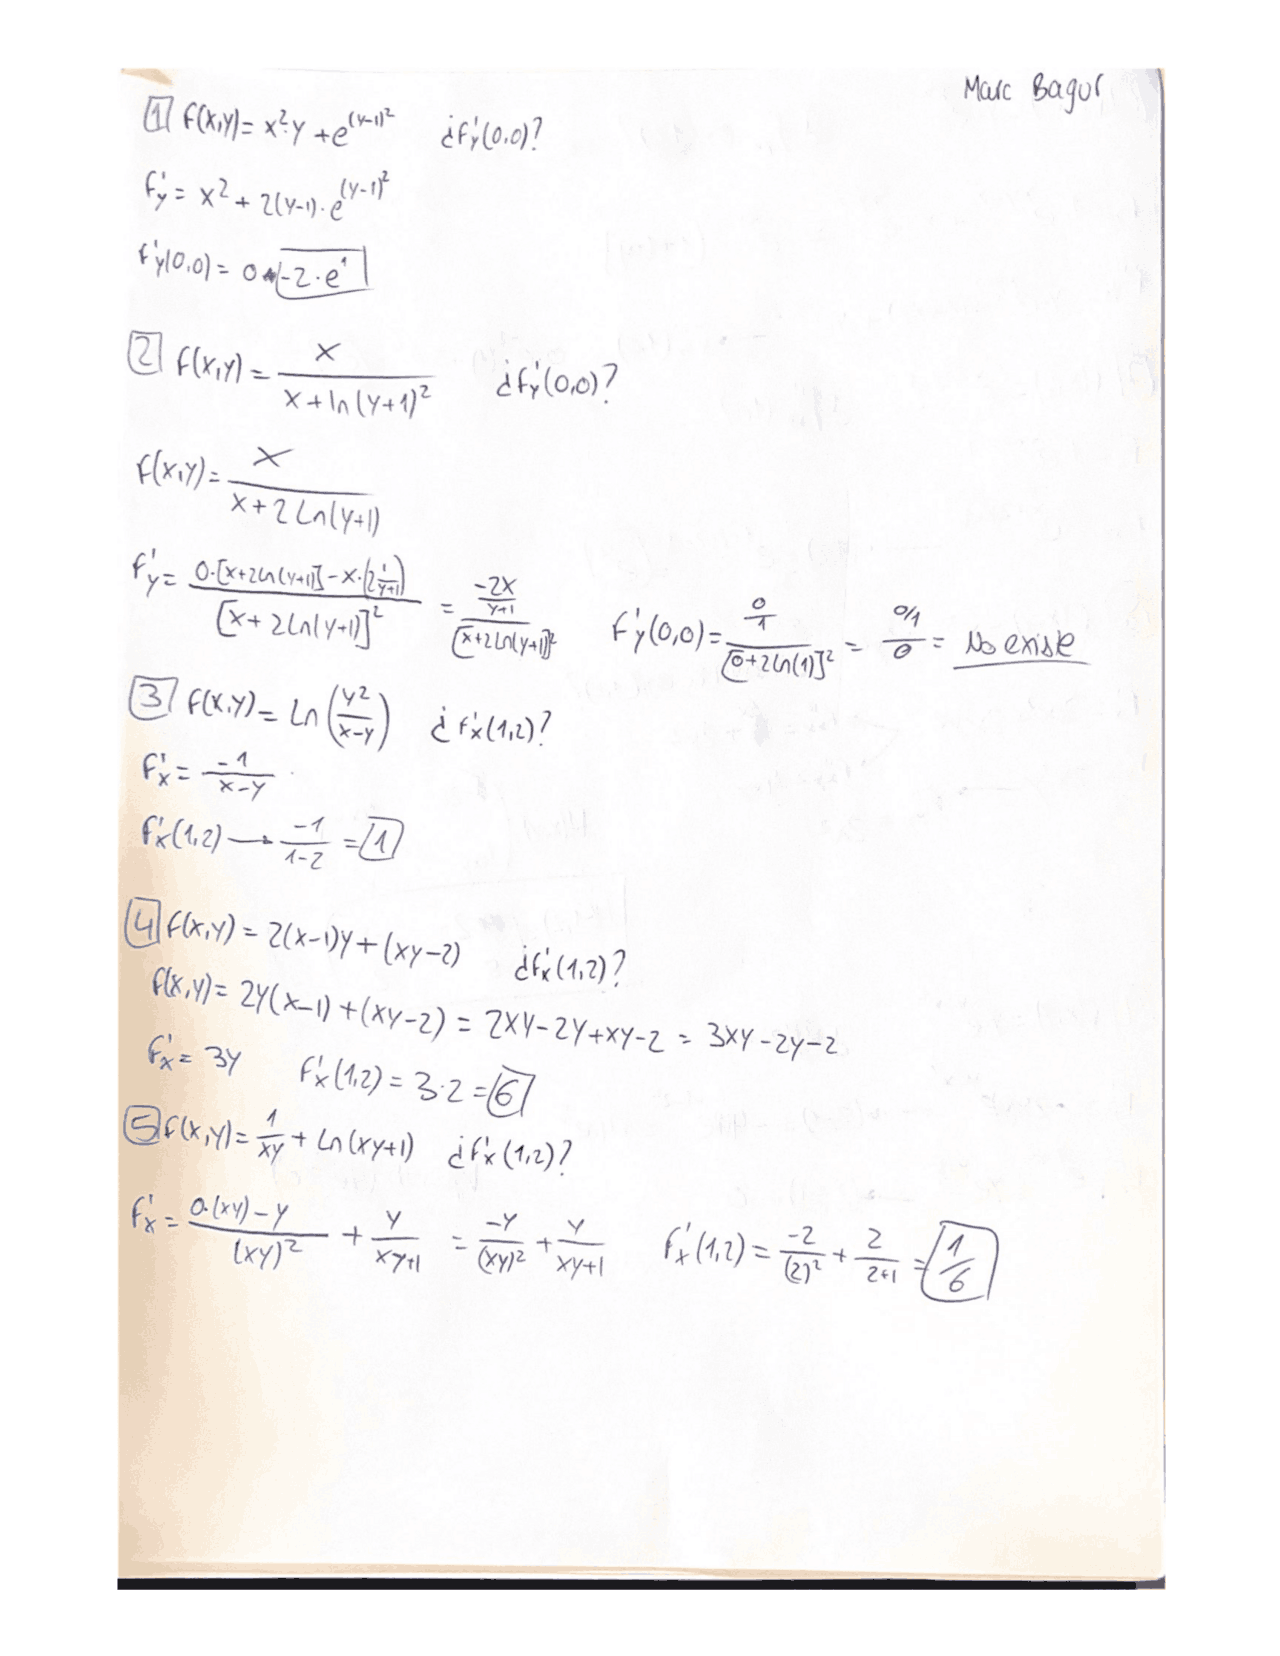 Marc Bagur
1 f(x,y)= x²·y + e^(y-1)² ¿f'y(0,0)?
f'y = x² + 2(y-1)·e^(y-1)²
f'y(0,0) = 0 + -2·e¹
2 f(x,y) = x / (x + ln(y+1)²) ¿f'y(0,0)?
f(x,y) = x / (x + 2 Ln(y+1))
f'y = (0·[x+2Ln(y+1)] - x·(2 1/(y+1))) / [x + 2Ln(y+1)]² = (-2x/(y+1)) / [x+2Ln(y+1)]² f'y(0,0) = (0/1) / [0+2Ln(1)]² = (0/1) / 0 = No existe
3 f(x,y) = Ln (y²/(x-y)) ¿f'x(1,2)?
f'x = -1/(x-y)
f'x(1,2) → -1/(1-2) = 1
4 f(x,y) = 2(x-1)y + (xy-2) ¿f'x(1,2)?
f(x,y) = 2y(x-1) + (xy-2) = 2xy-2y+xy-2 = 3xy-2y-2
f'x = 3y f'x(1,2) = 3·2 = 6
5 f(x,y) = 1/xy + Ln(xy+1) ¿f'x(1,2)?
f'x = (0·(xy) - y)/(xy)² + y/(xy+1) = -y/(xy)² + y/(xy+1) f'x(1,2) = -2/(2)² + 2/(2+1) = 1/6